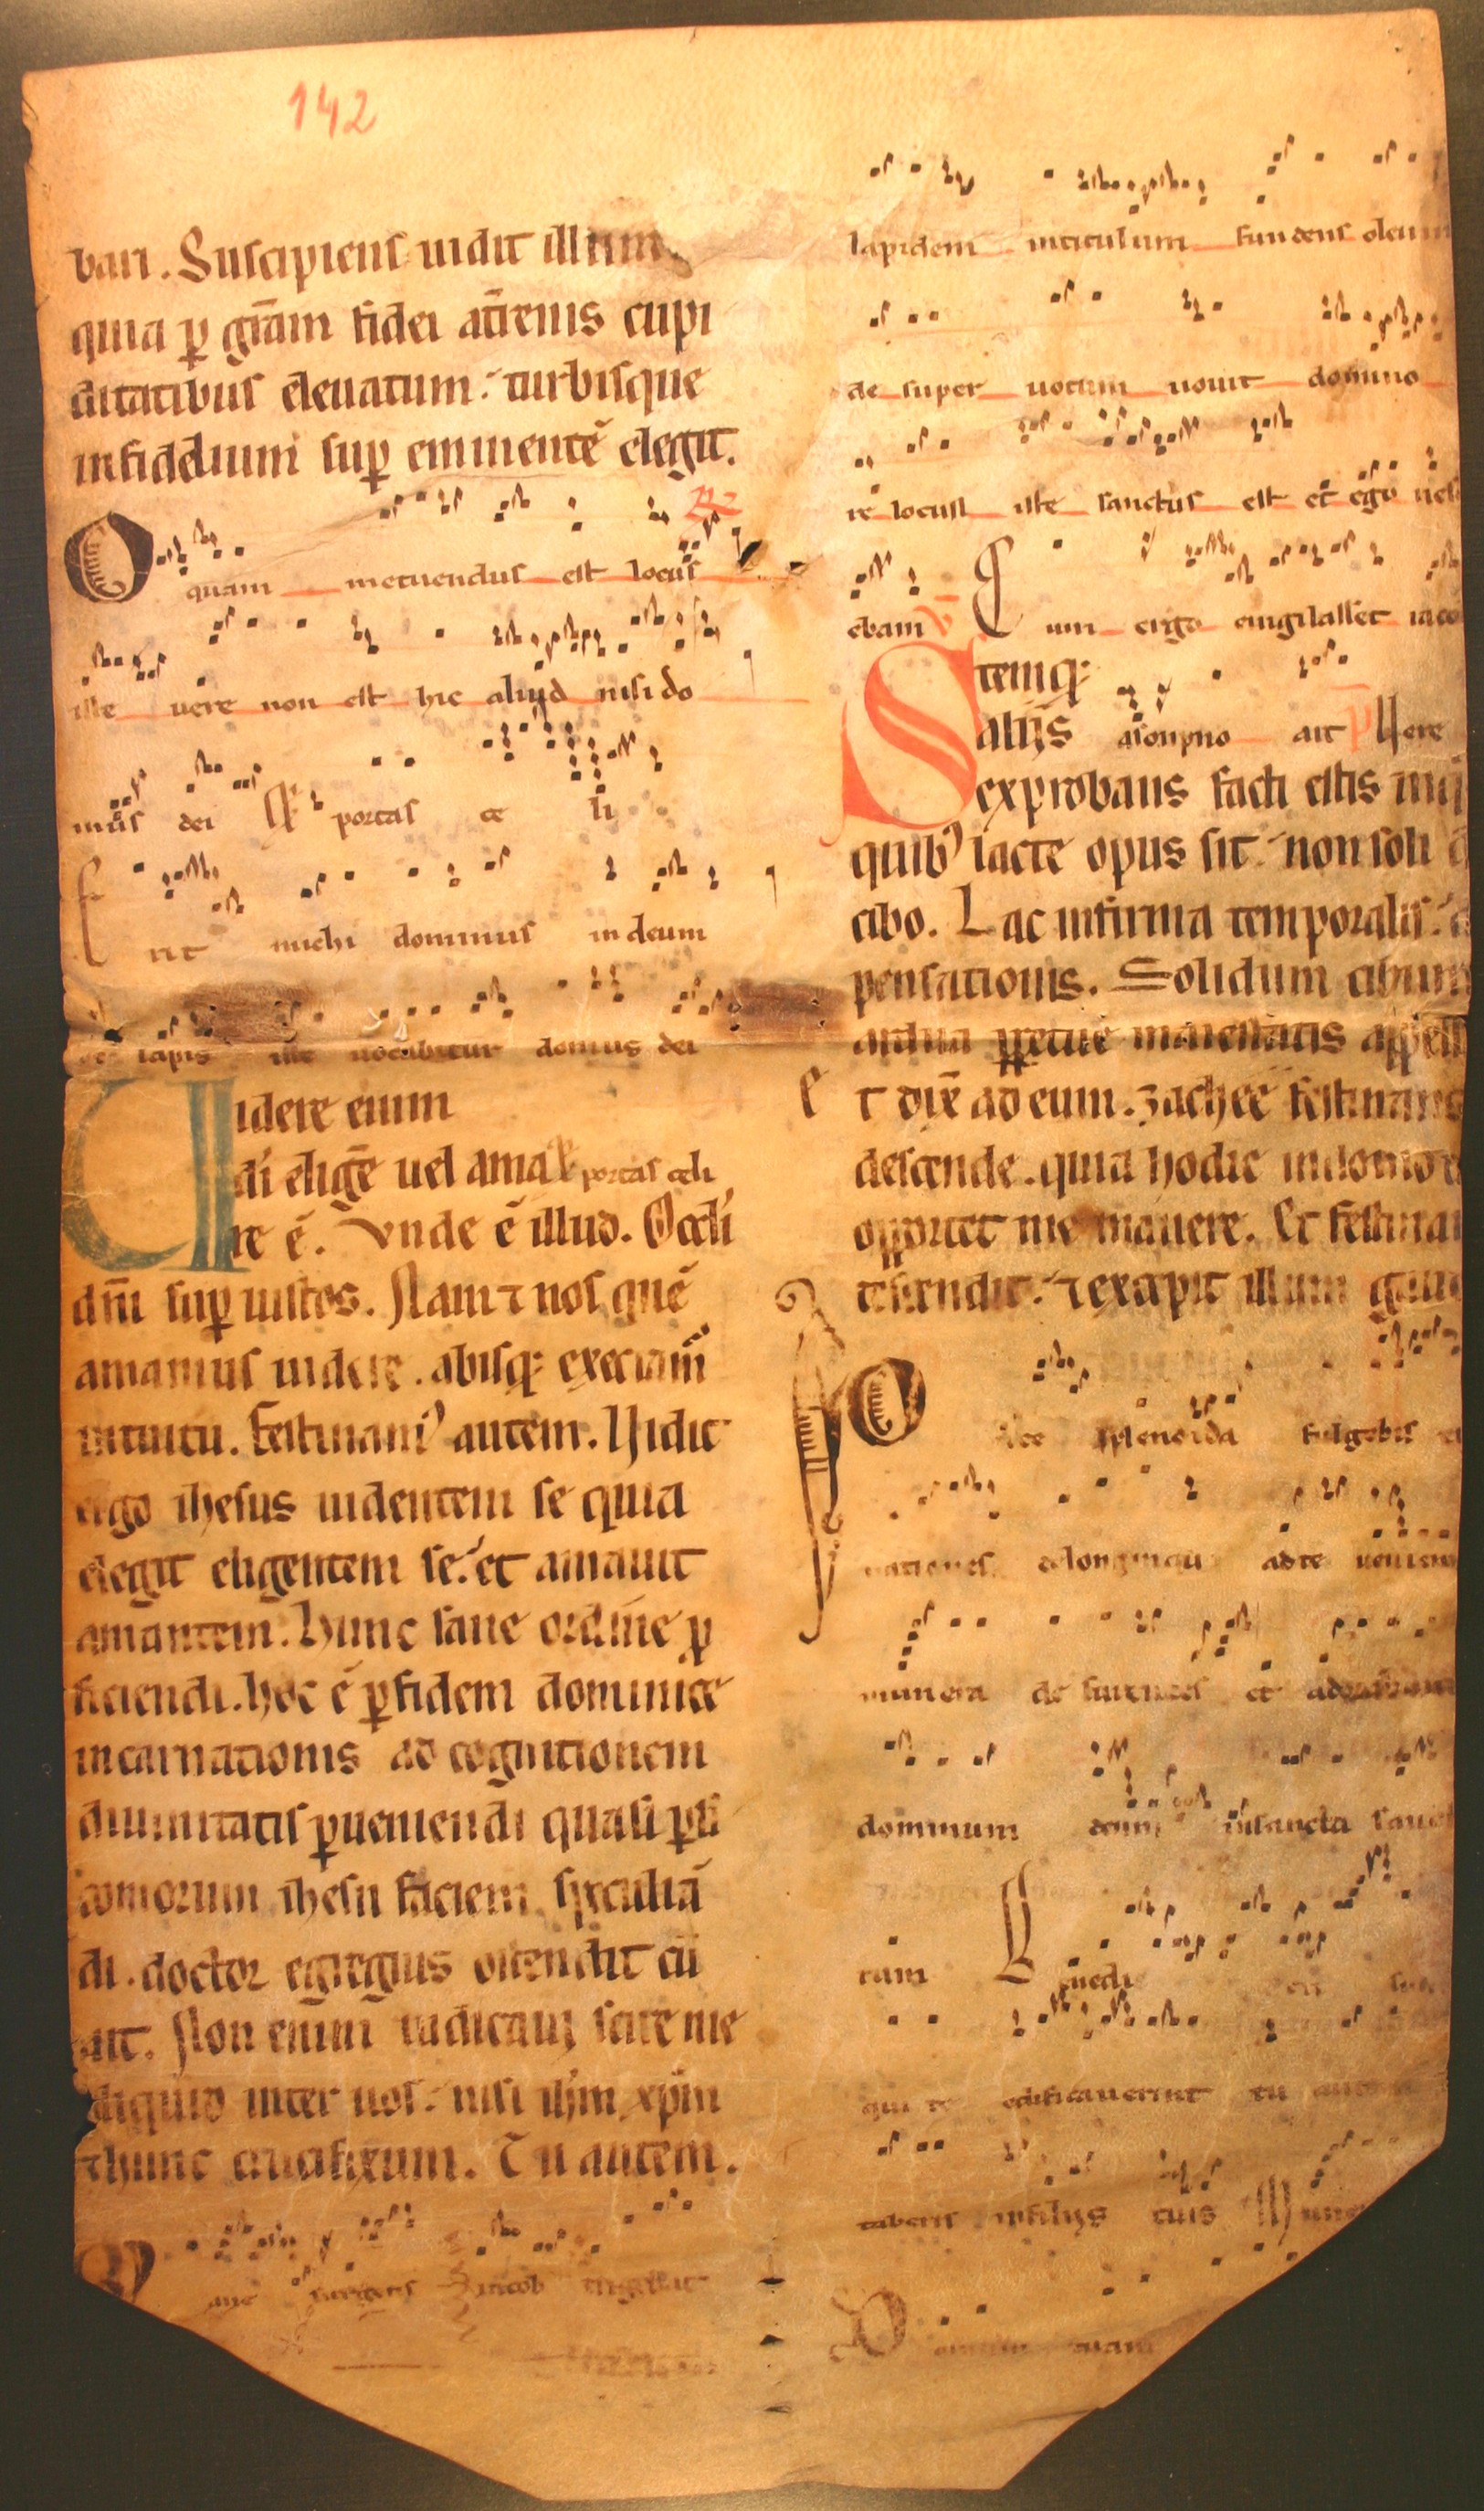 142
bari. Suscipiens uidit illum
quia p gr̄am fidei at̄renis cupi
ditatibus eleuatum. turbisque
infidelium sup eminentē elegit.
O quam metuendus est locus
iste uere non est hic aliud nisi do
mus dei Et portas ce li
Erit michi dominus in deum
lapis iste uocabitur domus dei
Uidere enim
di eligē uel ama portas celi
re ē. Vnde ē illud. Oculi
dn̄i sup iustos. Nam ⁊ nos quē
amamus uidere. abisq;
intuitu. festinam᾽ autem. Vidit
ergo ihesus uidentem se quia
elegit eligentem se. et amauit
amantem. Hunc sane ordinē p
ficiendi. hoc ē p fidem dominice
incarnationis ad cognitionem
diuinitatis pueniendi quasi p si
comorum ihesu faciem speculā
di. doctor egregius ostendit cū
ait. Non enim iudicaui scire me
aliquid inter uos. nisi ihm xp̄m
⁊ hunc crucifixum. Tu autem.
ane surgens iacob erigebat
lapidem in titulum fundens oleum
de super uotum uouit domino
re locus iste sanctus est et ego nesci
ebam V Cum ergo euigilasset iaco
temq;
Saliis a sompno ait P Uere
exprobans facti estis
quib᾽ lacte opus sit. non soli
cibo. Lac infirma temporalis.
pensationis. Solidum cibum
ardua ppetue maiestatis appell
e t dix̄ ad eum. zacheē festinans
descende. quia hodie in domo
oportet me manere. Et festinans
descendit. ⁊ excepit illum
splendida fulgebis
nationes e longinquo ad te uenient
munera de ferentes et adorabunt
dominum deum in sancta sanc
tam B nedi
qui te edificauerint tu autem
taberis in filiis tuis Mune